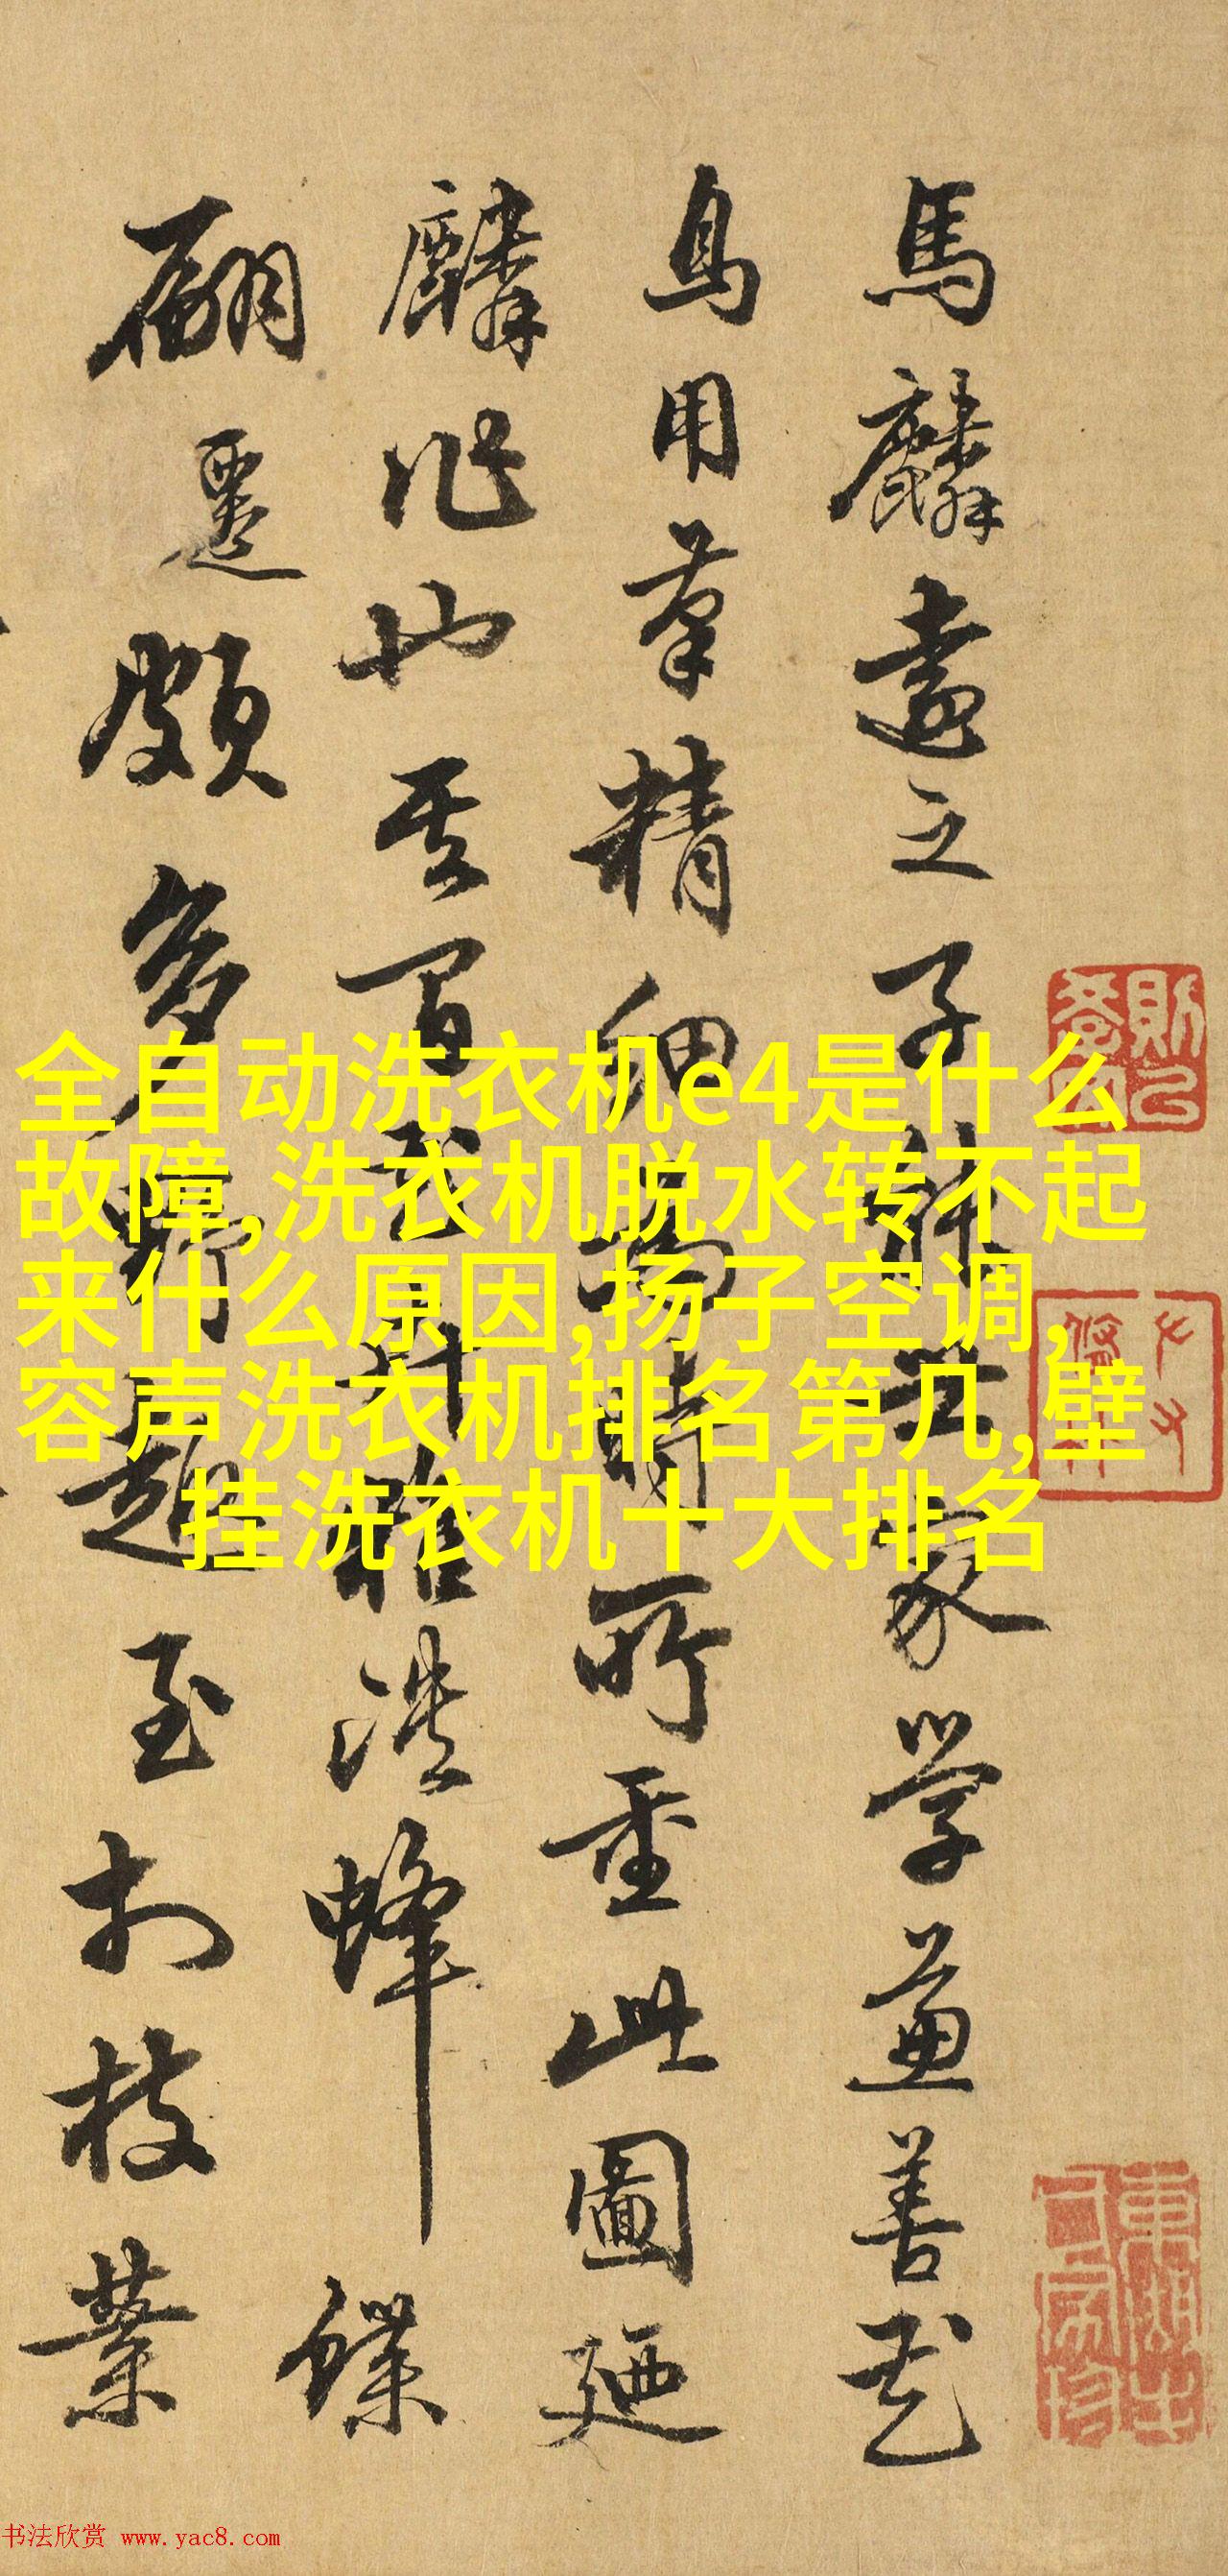 馬麟遠之子能世家學並善花
鳥用筆精細為時所重此圖廼
麟作也其間
蜂蝶
翩躚頗多野趣至於枝葉
全自动洗衣机e4是什么
故障,洗衣机脱水转不起
来什么原因,扬子空调,
容声洗衣机排名第几,壁
挂洗衣机十大排名
书法欣赏 www.yac8.com